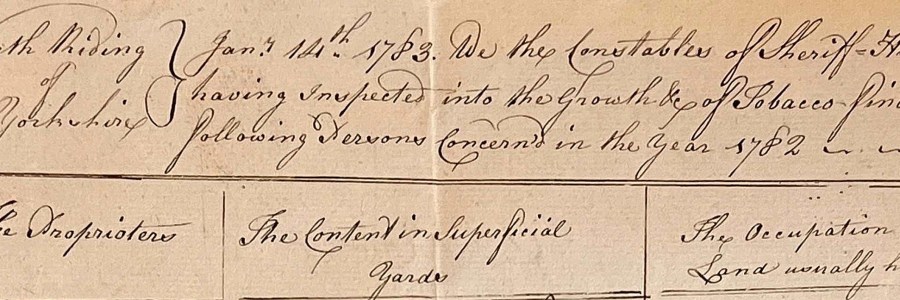 th Riding
of
Yorkshire
Jany 14th 1783. We the Constables of Sheriff=H
having Inspected into the Growth &c of Tobacco find
following Persons Concern'd in the Year 1782
e Proprieters
The Content in Superficial
Yards
The Occupation
Land usually h